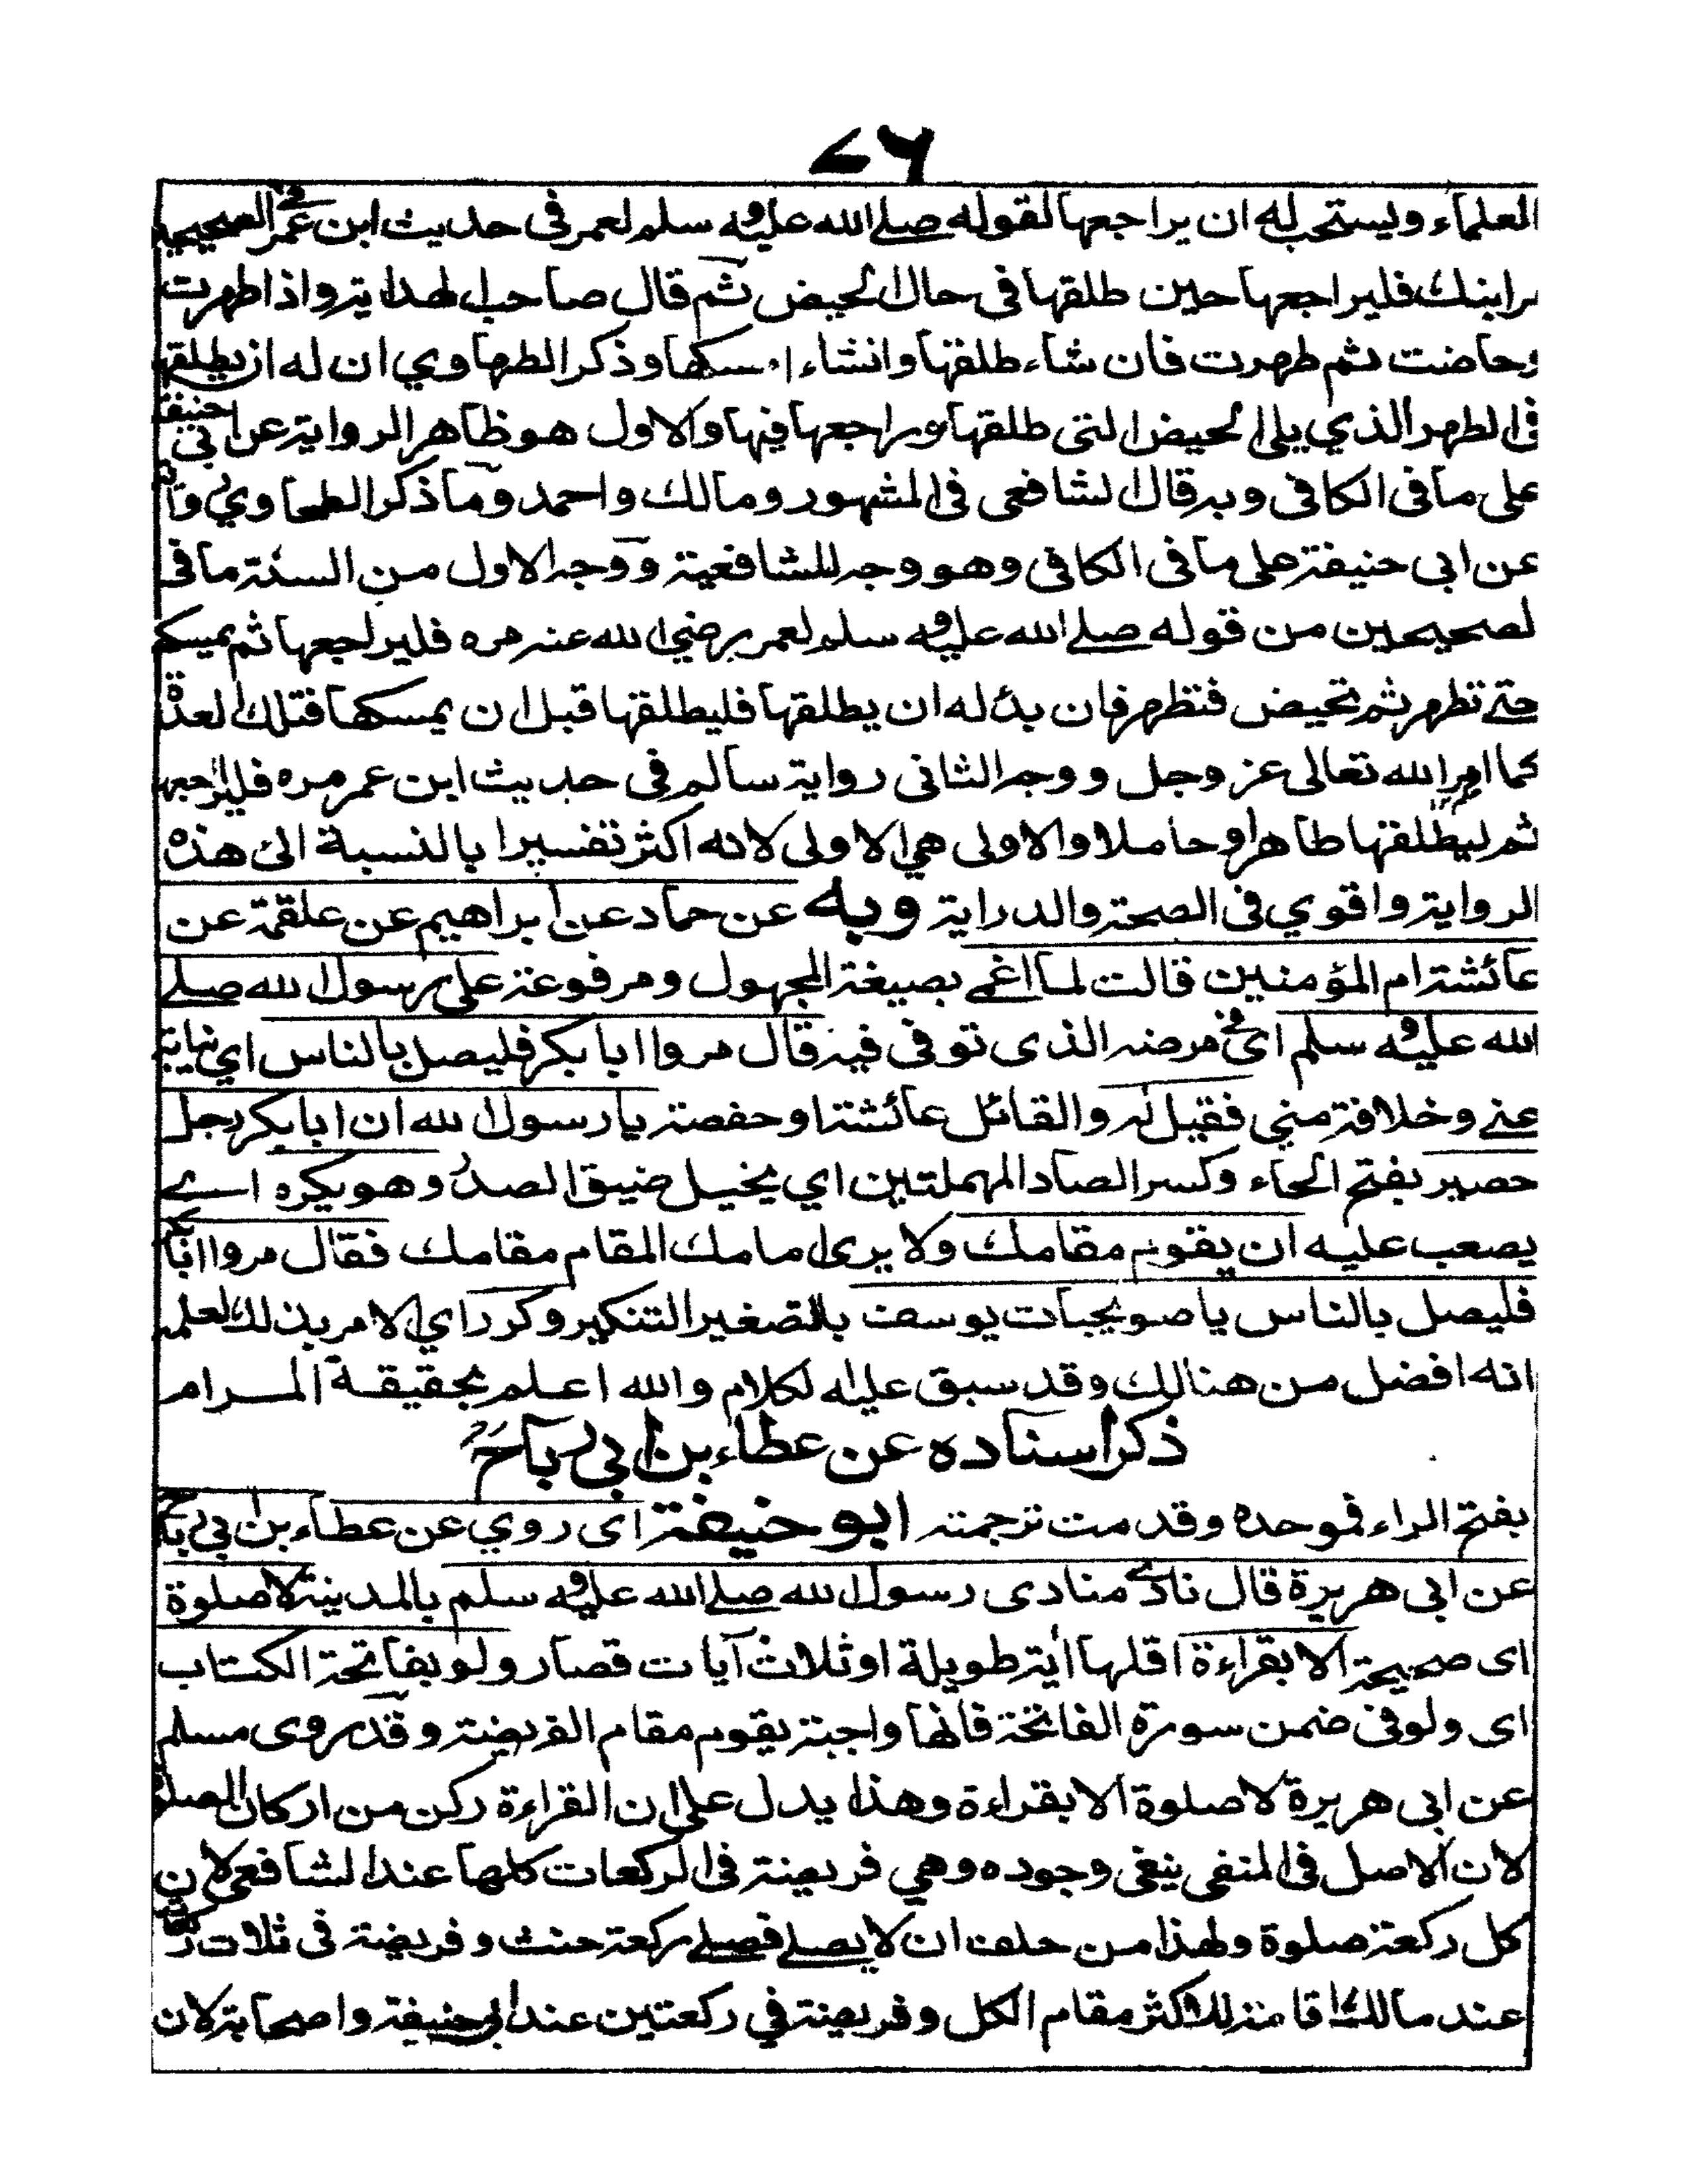 ٧٦
العلماء ويستحب له ان يراجعها لقوله صلے الله عليه و سلم لعمر فى حديث ابن عمر فى الصحيحين
مر ابنك فليراجعها حين طلقها فى حال الحيض ثم قال صاحب الهداية واذا طهرت
وحاضت ثم طهرت فان شاء طلقها وانشاء امسكها وذكر الطحاوي ان له ان يطلقها
فى الطهر الذي يلى الحيض التى طلقها وراجعها فيها والاول هو ظاهر الرواية عن ابى حنيفة
على ما فى الكافى وبه قال الشافعى فى المشهور ومالك واحمد وما ذكر الطحاوي
عن ابى حنيفة على ما فى الكافى وهو وجه للشافعية ووجه الاول من السنة ما فى
لصحيحين من قوله صلے الله عليه و سلم لعمر رضي الله عنه مره فليراجعها ثم يمسكها
حتے تطهر ثم تحيض فتطهر فان بدأ له ان يطلقها فليطلقها قبل ان يمسكها فتلك العدة
كما امر الله تعالى عز وجل ووجه الثانى رواية سالم فى حديث ابن عمر مره فليراجعها
ثم ليطلقها طاهرا او حاملا والاولى هي الاولى لانه اكثر تفسيرا بالنسبة الى هذه
الرواية واقوي فى الصحة والدراية وبه عن حماد عن ابراهيم عن علقمة عن
عائشة ام المؤمنين قالت لما اغمے بصيغة المجهول ومرفوعة على رسول الله صلے
الله عليه و سلم اى فى مرضه الذى توفى فيه قال مروا ابا بكر فليصل بالناس اي نيابة
عنے وخلافة مني فقيل له والقائل عائشة او حفصة يا رسول الله ان ابا بكر رجل
حصير بفتح الحاء وكسر الصاد المهملتين اي يخيل ضيق الصدر وهو يكره اے
يصعب عليه ان يقوم مقامك ولا يرى امامك المقام مقامك فقال مروا ابا بكر
فليصل بالناس يا صويحبات يوسف بالتصغير التنكير وكرر اي الامر بذلك لعلمه
انه افضل من هنالك وقد سبق عليه الكلام والله اعلم بحقيقة المرام
ذكر اسناده عن عطاء بن ابى رباح
بفتح الراء فموحده وقدمت ترجمته ابو حنيفة اى روي عن عطاء بن ابى رباح
عن ابى هريرة قال نادے منادى رسول الله صلے الله عليه و سلم بالمدينة لا صلوة
اى صحيحة الا بقراءة اقلها اٰية طويلة او ثلاث آيات قصار ولو بفاتحة الكتاب
اى ولو فى ضمن سورة الفاتحة فانها واجبة يقوم مقام الفريضة وقد روى مسلم
عن ابى هريرة لا صلوة الا بقراءة وهذا يدل على ان القراءة ركن من اركان الصلوة
لان الاصل فى المنفى ينفى وجوده وهي فريضة فى الركعات كلها عند الشافعى لان
كل ركعة صلوة ولهذا من حلف ان لا يصلے فصلے ركعة حنث وفريضة فى ثلاث ركعات
عند مالك اقامة للاكثر مقام الكل وفريضة في ركعتين عند ابى حنيفة واصحابه لان